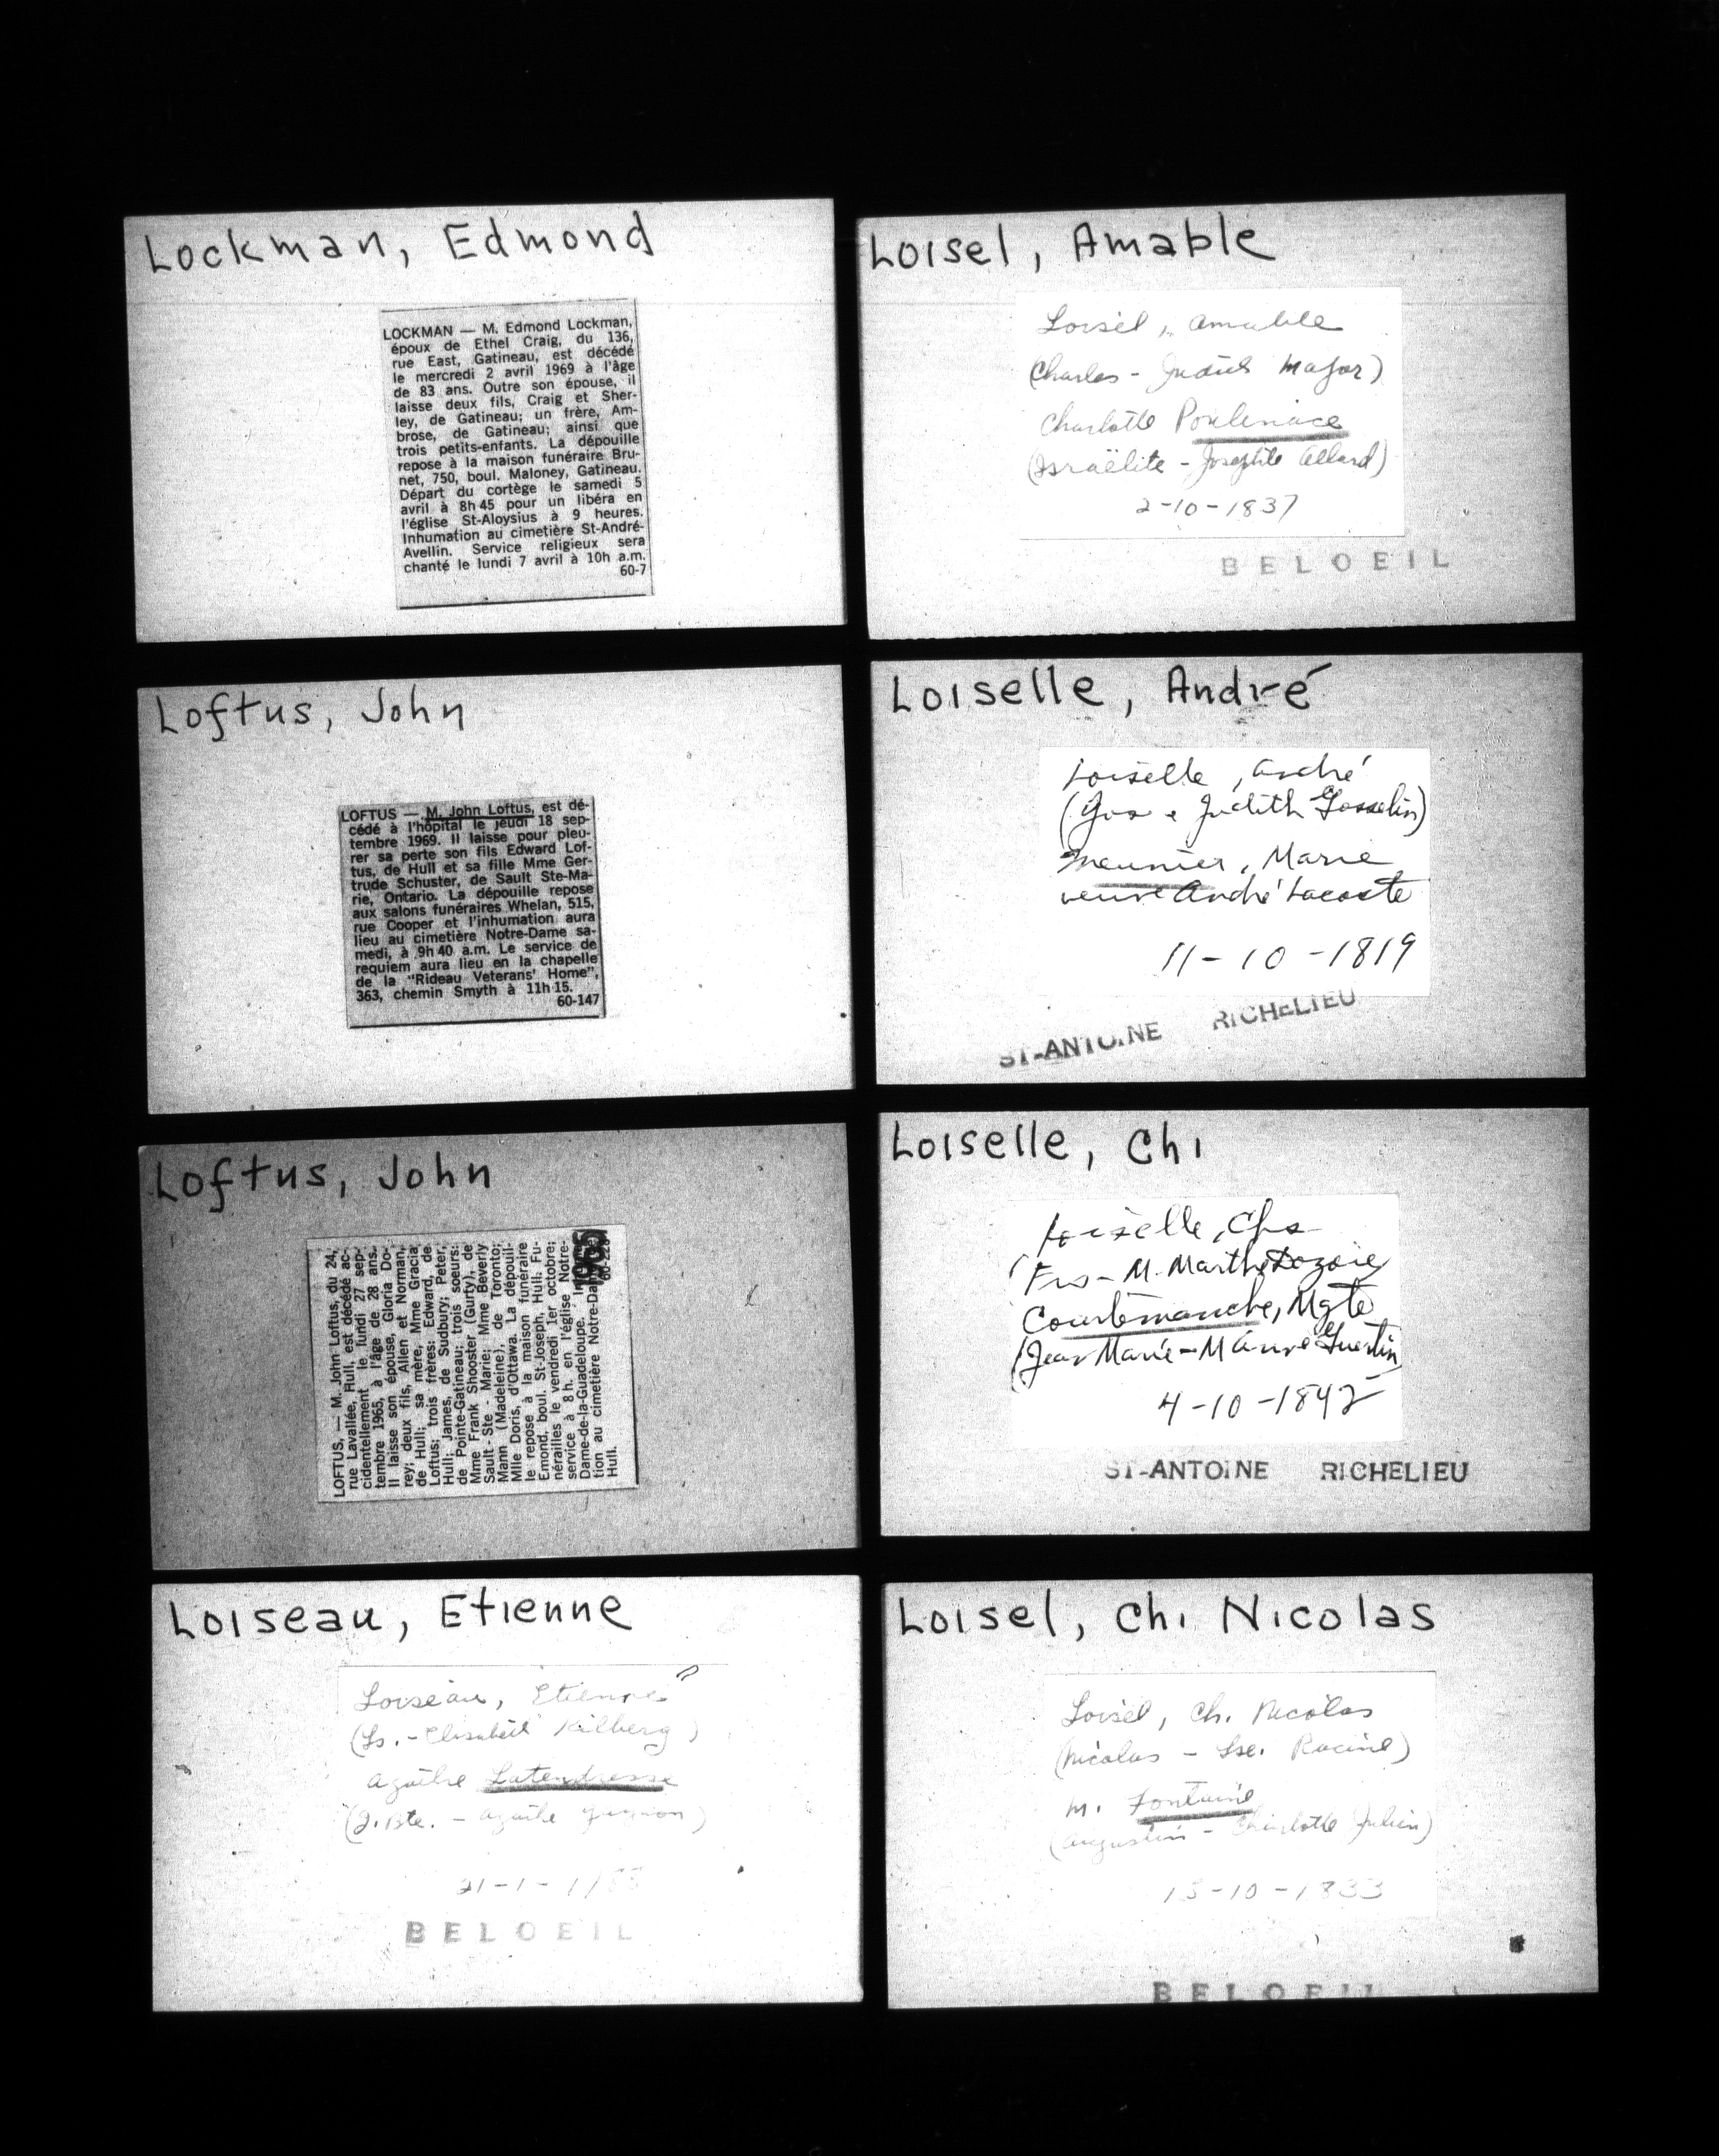 Lockman, Edmond
LOCKMAN — M. Edmond Lockman,
époux de Ethel Craig, du 136,
rue East, Gatineau, est décédé
le mercredi 2 avril 1969 à l'âge
de 83 ans. Outre son épouse, il
laisse deux fils, Craig et Sher-
ley, de Gatineau; un frère, Am-
brose, de Gatineau; ainsi que
trois petits-enfants. La dépouille
repose à la maison funéraire Bru-
net, 750, boul. Maloney, Gatineau.
Départ du cortège le samedi 5
avril à 8h 45 pour un libéra en
l'église St-Aloysius à 9 heures.
Inhumation au cimetière St-André-
Avellin. Service religieux sera
chanté le lundi 7 avril à 10h a.m.
60-7
Loftus, John
LOFTUS — M. John Loftus, est dé-
cédé à l'hôpital le jeudi 18 sep-
tembre 1969. Il laisse pour pleu-
rer sa perte son fils Edward Lof-
tus, de Hull et sa fille Mme Ger-
trude Schuster, de Sault Ste-Ma-
rie, Ontario. La dépouille repose
aux salons funéraires Whelan, 515,
rue Cooper et l'inhumation aura
lieu au cimetière Notre-Dame sa-
medi, à 9h 40 a.m. Le service de
requiem aura lieu en la chapelle
de la "Rideau Veterans' Home",
363, chemin Smyth à 11h 15.
60-147
Loftus, John
LOFTUS, — M. John Loftus, du 24,
rue Lavallée, Hull, est décédé ac-
cidentellement le lundi 27 sep-
tembre 1965, à l'âge de 28 ans.
Il laisse son épouse, Gloria Do-
rey; deux fils, Allen et Norman,
de Hull; sa mère, Mme Gracia
Loftus; trois frères: Edward, de
Hull; James, de Sudbury; Peter,
de Pointe-Gatineau; trois soeurs:
Mme Frank Shooster (Gurty), de
Sault - Ste - Marie; Mme Beverly
Mann (Madeleine), de Toronto;
Mlle Doris, d'Ottawa. La dépouil-
le repose à la maison funéraire
Emond, boul. St-Joseph, Hull. Fu-
nérailles le vendredi 1er octobre;
service à 8 h. en l'église Notre-
Dame-de-la-Guadeloupe.
tion au cimetière Notre-Dame
Hull.
1965
Loiseau, Etienne
Loiseau, Etienne
(Ls. - Elisabeth Kilberg)
Agathe Latendresse
(J. Bte. - Agathe Gagnon)
21-1-
BELOEIL
Loisel, Amable
Loisel, Amable
(Charles - Judith Major)
Charlotte Poulinace
(Israëlite - Josephte Allard)
2-10-1837
BELOEIL
Loiselle, André
Loiselle, André
(Jos & Judith Gosselin)
Meunier, Marie
veuve André Lacoste
11-10-1819
ST-ANTOINE RICHELIEU
Loiselle, Chi
Loiselle, Chs
(Frs - M. Marthe Dozois
Courtemanche, Mgte
(Jean Marie - M Anne Guertin
4-10-1842
ST-ANTOINE RICHELIEU
Loisel, Chi Nicolas
Loisel, Ch. Nicolas
(Nicolas - Lse. Racine)
M. Fontaine
(Augustin - Charlotte Julien)
15-10-1833
BELOEIL